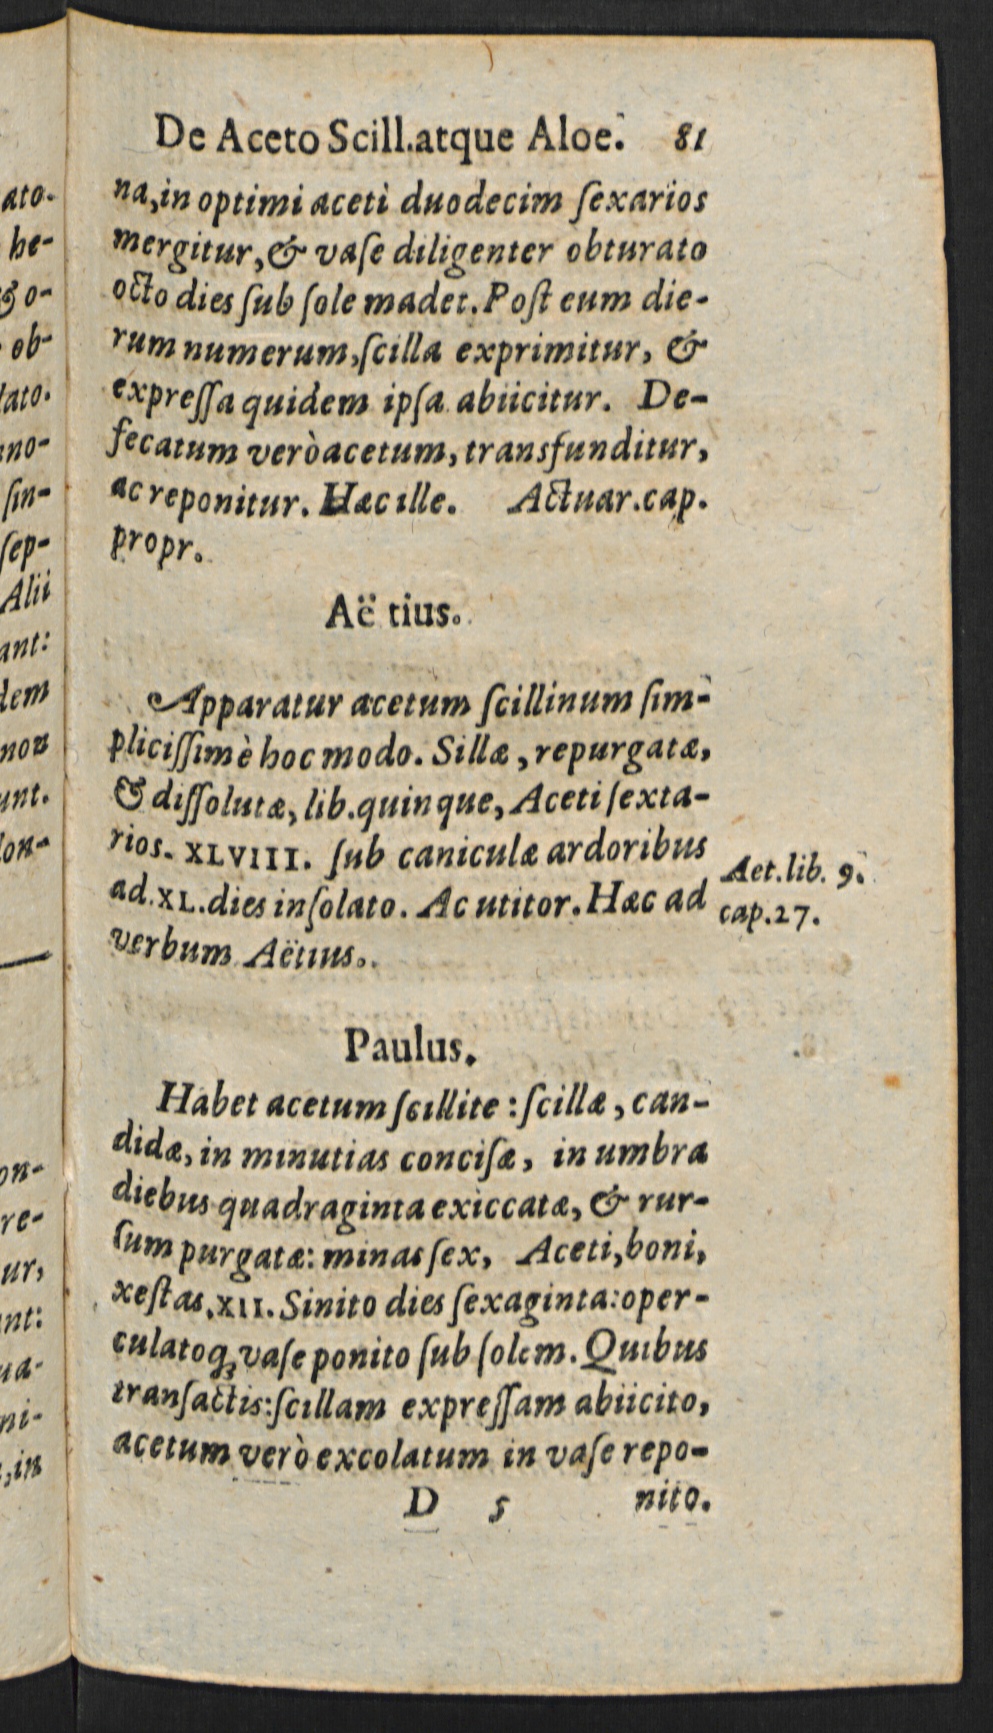 De Aceto Scill.atque Aloe. 81
na,in optimi aceti duodecim ſexarios
mergitur,& vaſe diligenter obturato
octo dies ſub ſole madet. Poſt eum die-
rum numerum,ſcilla exprimitur, &
expreſſa quidem ipſa abiicitur. De-
fecatum verò acetum, transfunditur,
ac reponitur. Hæc ille. Actuar.cap.
propr.
Aë tius.
Apparatur acetum ſcillinum ſim-
pliciſſimè hoc modo. Sillæ, repurgatæ,
& diſſolutæ, lib.quinque, Aceti ſexta-
rios. XLVIII. ſub caniculæ ardoribus
ad.XL.dies inſolato. Ac utitor. Hæc ad
verbum Aëtius.
Aet.lib. 9.
cap.27.
Paulus.
Habet acetum ſcillite: ſcillæ, can-
didæ, in minutias conciſæ, in umbra
diebus quadraginta exiccatæ, & rur-
ſum purgatæ: minas ſex, Aceti,boni,
xeſtas.XII. Sinito dies ſexaginta:oper-
culatoq; vaſe ponito ſub ſolem. Quibus
tranſactis:ſcillam expreſſam abiicito,
acetum verò excolatum in vaſe repo-
D 5 nito.
ato-
he-
& o-
ob-
lato.
no-
ſin-
ſep-
Alii
ant:
dem
non
unt.
on-
on-
re-
ur,
nt:
ua-
ni-
,in